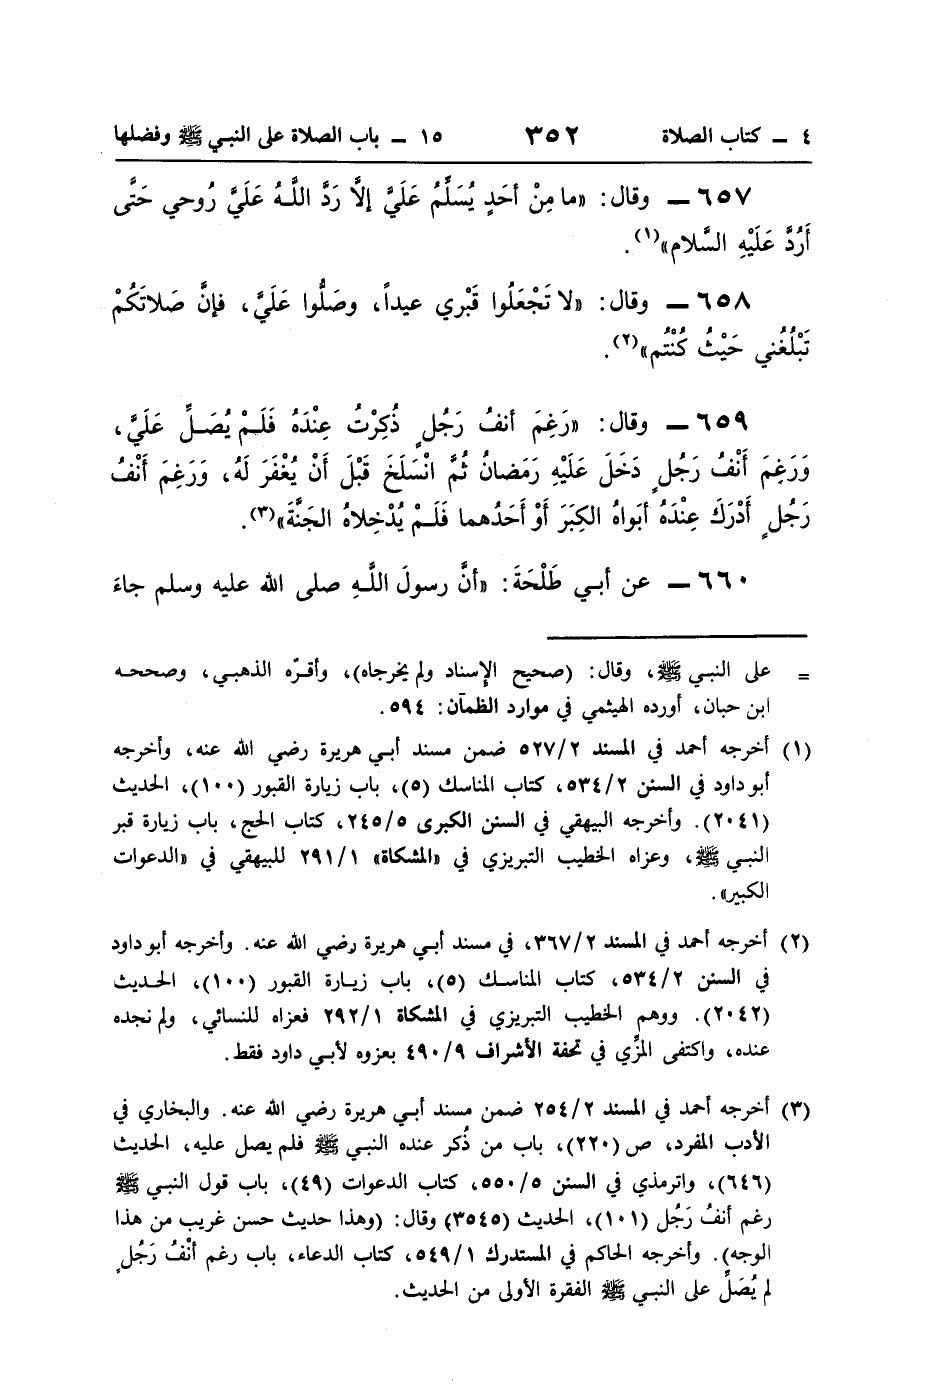 ٤ ــ كتاب الصلاة ٣٥٢ ١٥ ــ باب الصلاة على النبي ﷺ وفضلها
٦٥٧ ــ وقال: «ما مِنْ أحَدٍ يُسَلِّمُ عَلَيَّ إلَّا رَدَّ اللَّهُ عَلَيَّ رُوحي حَتَّى
أَرُدَّ عَلَيْهِ السَّلام»(١).
٦٥٨ ــ وقال: «لا تَجْعَلُوا قَبْري عيداً، وصَلُّوا عَلَيَّ، فإنَّ صَلاتَكُمْ
تَبْلُغُني حَيْثُ كُنْتُم»(٢).
٦٥٩ ــ وقال: «رَغِمَ أنفُ رَجُلٍ ذُكِرْتُ عِنْدَهُ فَلَمْ يُصَلِّ عَلَيَّ،
وَرَغِمَ أَنْفُ رَجُلٍ دَخَلَ عَلَيْهِ رَمَضانُ ثُمَّ انْسَلَخَ قَبْلَ أَنْ يُغْفَرَ لَهُ، وَرَغِمَ أَنْفُ
رَجُلٍ أَدْرَكَ عِنْدَهُ أبَواهُ الكِبَرَ أَوْ أَحَدُهما فَلَمْ يُدْخِلاهُ الجَنَّةَ»(٣).
٦٦٠ ــ عن أبي طَلْحَةَ: «أنَّ رسولَ اللَّهِ صلى الله عليه وسلم جاءَ
= على النبي ﷺ، وقال: (صحيح الإسناد ولم يخرجاه)، وأقرّه الذهبي، وصححه
ابن حبان، أورده الهيثمي في موارد الظمآن: ٥٩٤.
(١) أخرجه أحمد في المسند ٥٢٧/٢ ضمن مسند أبي هريرة رضي الله عنه، وأخرجه
أبو داود في السنن ٥٣٤/٢، كتاب المناسك (٥)، باب زيارة القبور (١٠٠)، الحديث
(٢٠٤١). وأخرجه البيهقي في السنن الكبرى ٢٤٥/٥، كتاب الحج، باب زيارة قبر
النبي ﷺ، وعزاه الخطيب التبريزي في «المشكاة» ٢٩١/١ للبيهقي في «الدعوات
الكبير».
(٢) أخرجه أحمد في المسند ٣٦٧/٢، في مسند أبي هريرة رضي الله عنه. وأخرجه أبو داود
في السنن ٥٣٤/٢، كتاب المناسك (٥)، باب زيارة القبور (١٠٠)، الحديث
(٢٠٤٢). ووهم الخطيب التبريزي في المشكاة ٢٩٢/١ فعزاه للنسائي، ولم نجده
عنده، واكتفى المزِّي في تحفة الأشراف ٤٩٠/٩ بعزوه لأبي داود فقط.
(٣) أخرجه أحمد في المسند ٢٥٤/٢ ضمن مسند أبي هريرة رضي الله عنه. والبخاري في
الأدب المفرد، ص (٢٢٠)، باب من ذُكر عنده النبي ﷺ فلم يصل عليه، الحديث
(٦٤٦)، واترمذي في السنن ٥٥٠/٥، كتاب الدعوات (٤٩)، باب قول النبي ﷺ
رغم أنفُ رَجُل (١٠١)، الحديث (٣٥٤٥) وقال: (وهذا حديث حسن غريب من هذا
الوجه). وأخرجه الحاكم في المستدرك ٥٤٩/١، كتاب الدعاء، باب رغم أَنْفُ رَجُلٍ
لم يُصَلِّ على النبي ﷺ الفقرة الأولى من الحديث.